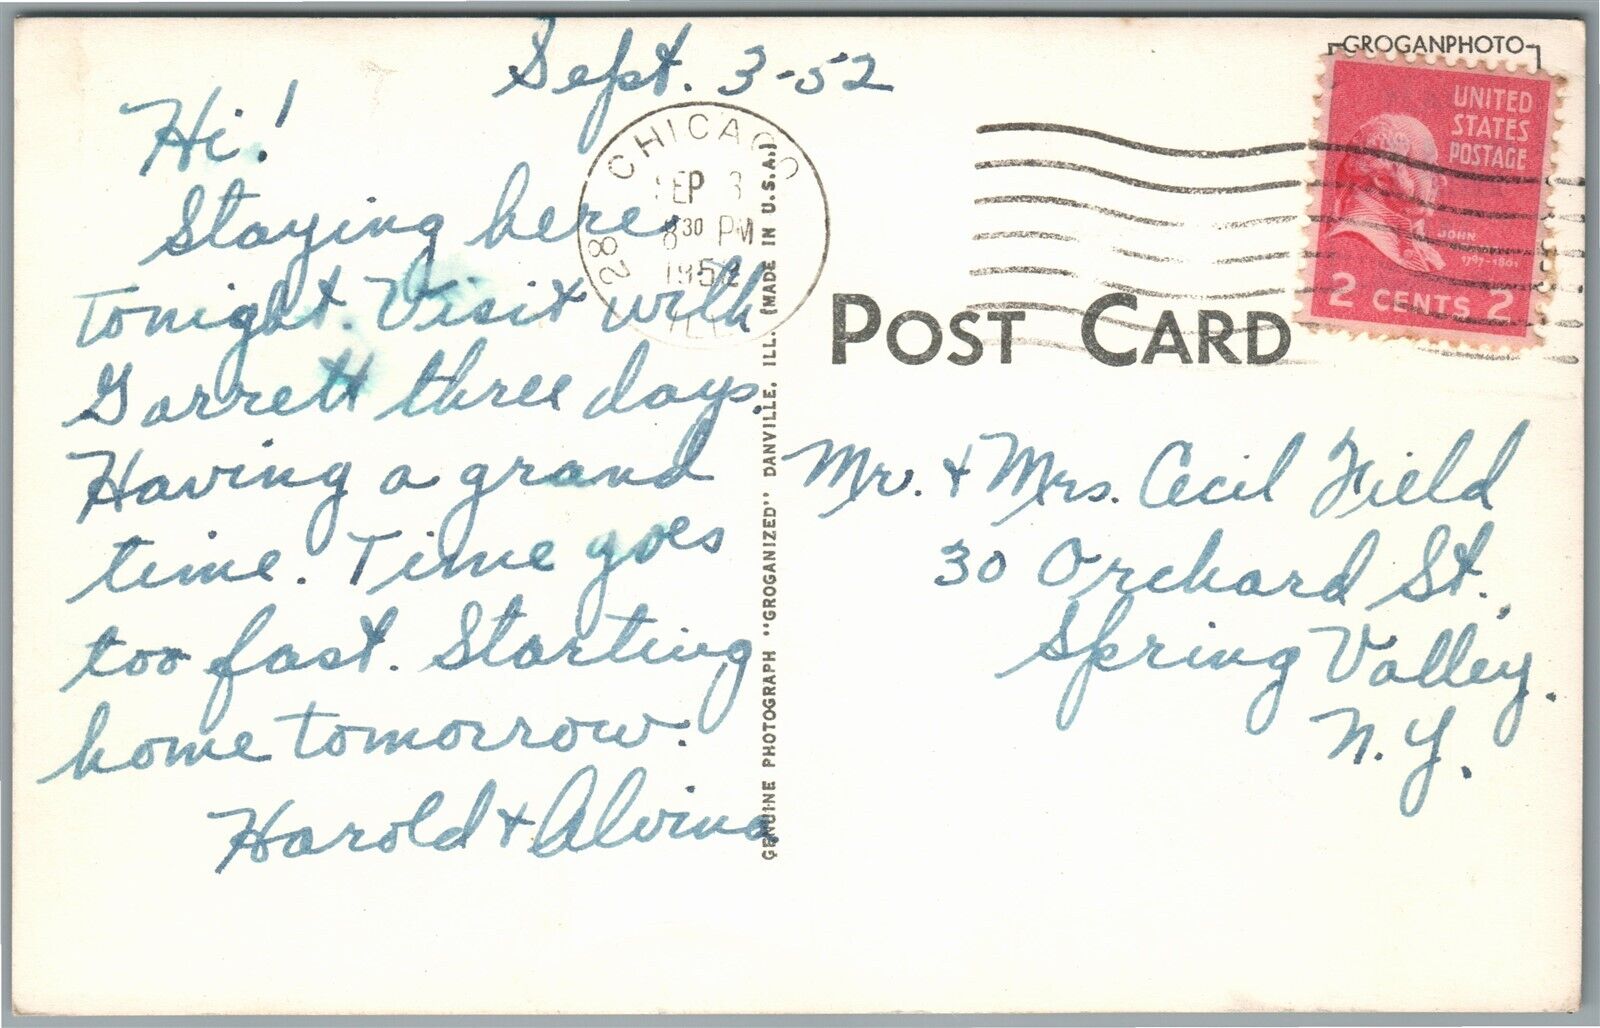 Sept. 3-52
Hi!
Staying here
tonight. Visit with
Garrett three days.
Having a grand
time. Time goes
too fast. Starting
home tomorrow.
Harold & Alvina
CHICAGO
28
SEP 3
8 30 PM
1952
ILL.
GENUINE PHOTOGRAPH "GROGANIZED" DANVILLE, ILL. (MADE IN U.S.A.)
GROGANPHOTO
UNITED
STATES
POSTAGE
JOHN
1797-1801
2 CENTS 2
POST CARD
Mr. & Mrs. Cecil Field
30 Orchard St.,
Spring Valley.
N.Y.